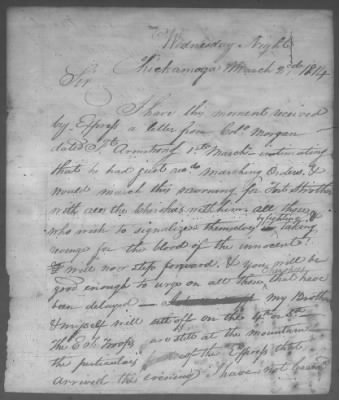 Wednesday Night
Chickamaga March 2nd 1814
Sir
I have this moment received
by Express a letter from Colo. Morgan
dated Ft. Armstrong 1st March intimating
that he had just recd. marching Orders, &
would march this morning for Fort Strother
with all the Cherokees with him. all those
who wish to signalize themselves by fighting & taking
revenge for the blood of the innocent
will now step forward. & you will be
good enough to urge on all those Cherokees that have
been delayed — my Brother
& myself will sett off on the 4th or 5th
The East Troops are still at the mountain
the particulars of the Express that
arrived this evening I have not heard